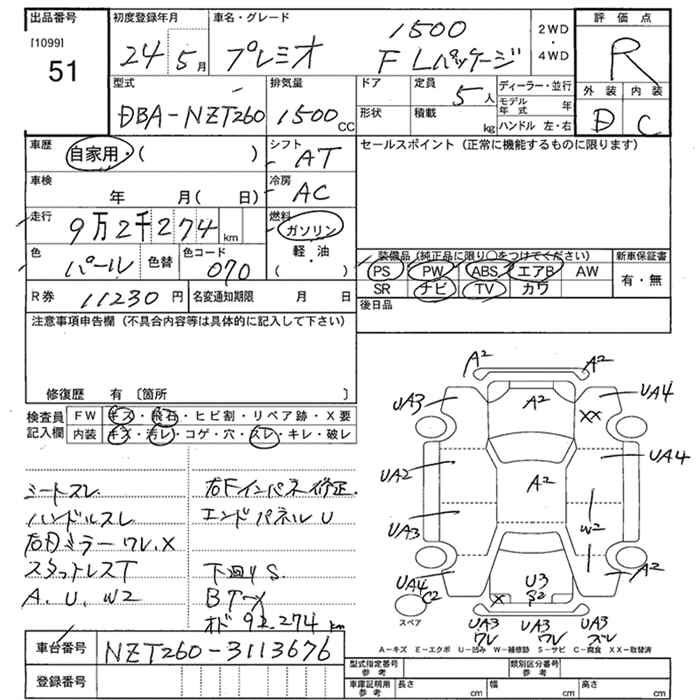 出品番号 初度登録年月 車名・グレード 1500 2WD・4WD 評価点
[1099] 51 24 5月 プレミオ F Lパッケージ R
型式 排気量 ドア 定員 5人 ディーラー・並行 外装 内装
DBA-NZT260 1500 CC 形状 積載 kg モデル年式 年 D C
ハンドル 左・右
車歴 自家用・( ) シフト AT セールスポイント (正常に機能するものに限ります)
車検 年 月( 日) 冷房 AC
走行 9万2千274 km 燃料 ガソリン
軽・油
( )
色 パール 色替 色コード 070
装備品 (純正品に限り○をつけてください) 新車保証書
PS PW ABS エアB AW 有・無
SR ナビ TV カワ
R券 11230円 名変通知期限 月 日 後日品
注意事項申告欄 (不具合内容等は具体的に記入して下さい)
修復歴 有 〔箇所 〕
検査員記入欄 FW キズ・飛石・ヒビ割・リペア跡・X要
内装 キズ・汚レ・コゲ・穴・スレ・キレ・破レ
シートスレ 右Fインパネ修正
ハンドルスレ エンドパネルU
右Dミラーワレ.X
スタットレスT 下廻りS.
A.U.W2
オド 92,274 km
A² A²
UA3 A² XX UA4
UA2 A² UA4
UA3 W2
UA4 C2 U3 S2 X A²
スペア UA3 ワレ UA3 ワレ UA3
A-キズ E-エクボ U-凹み W-補修跡 S-サビ C-腐食 XX-取替済
車台番号 NZT260-3113676
登録番号
型式指定番号 参考 類別区分番号 参考
車庫証明用 参考 長さ cm 幅 cm 高さ cm